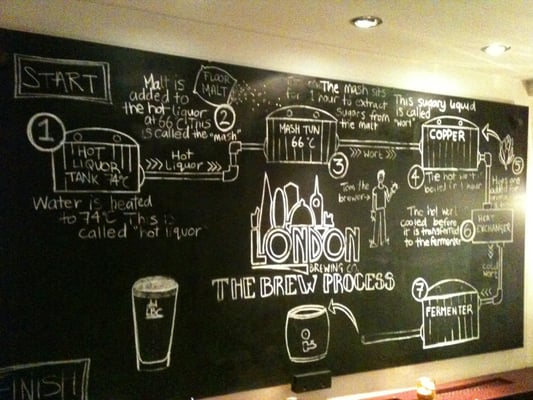 START
1
HOT
LIQUOR
TANK 74°C
Water is heated
to 74°C This is
called "hot liquor
Hot
Liquor
Malt is
added to
the hot liquor
at 66°C this
is called the "mash"
FLOOR
MALT
2
MASH TUN
66°C
3
The mash sits
for 1 hour to extract
sugars from
the malt
WORT
This sugary liquid
is called
"wort"
COPPER
4
The hot wort is
boiled in 1 hour
5
Hops are
added for
6
HEAT
EXCHANGER
The hot wort
cooled before
it is transferred
to the fermenter
COLD
WORT
7
FERMENTER
Tom the
brewer
LONDON
BREWING CO.
THE BREW PROCESS
LBC
FINISH